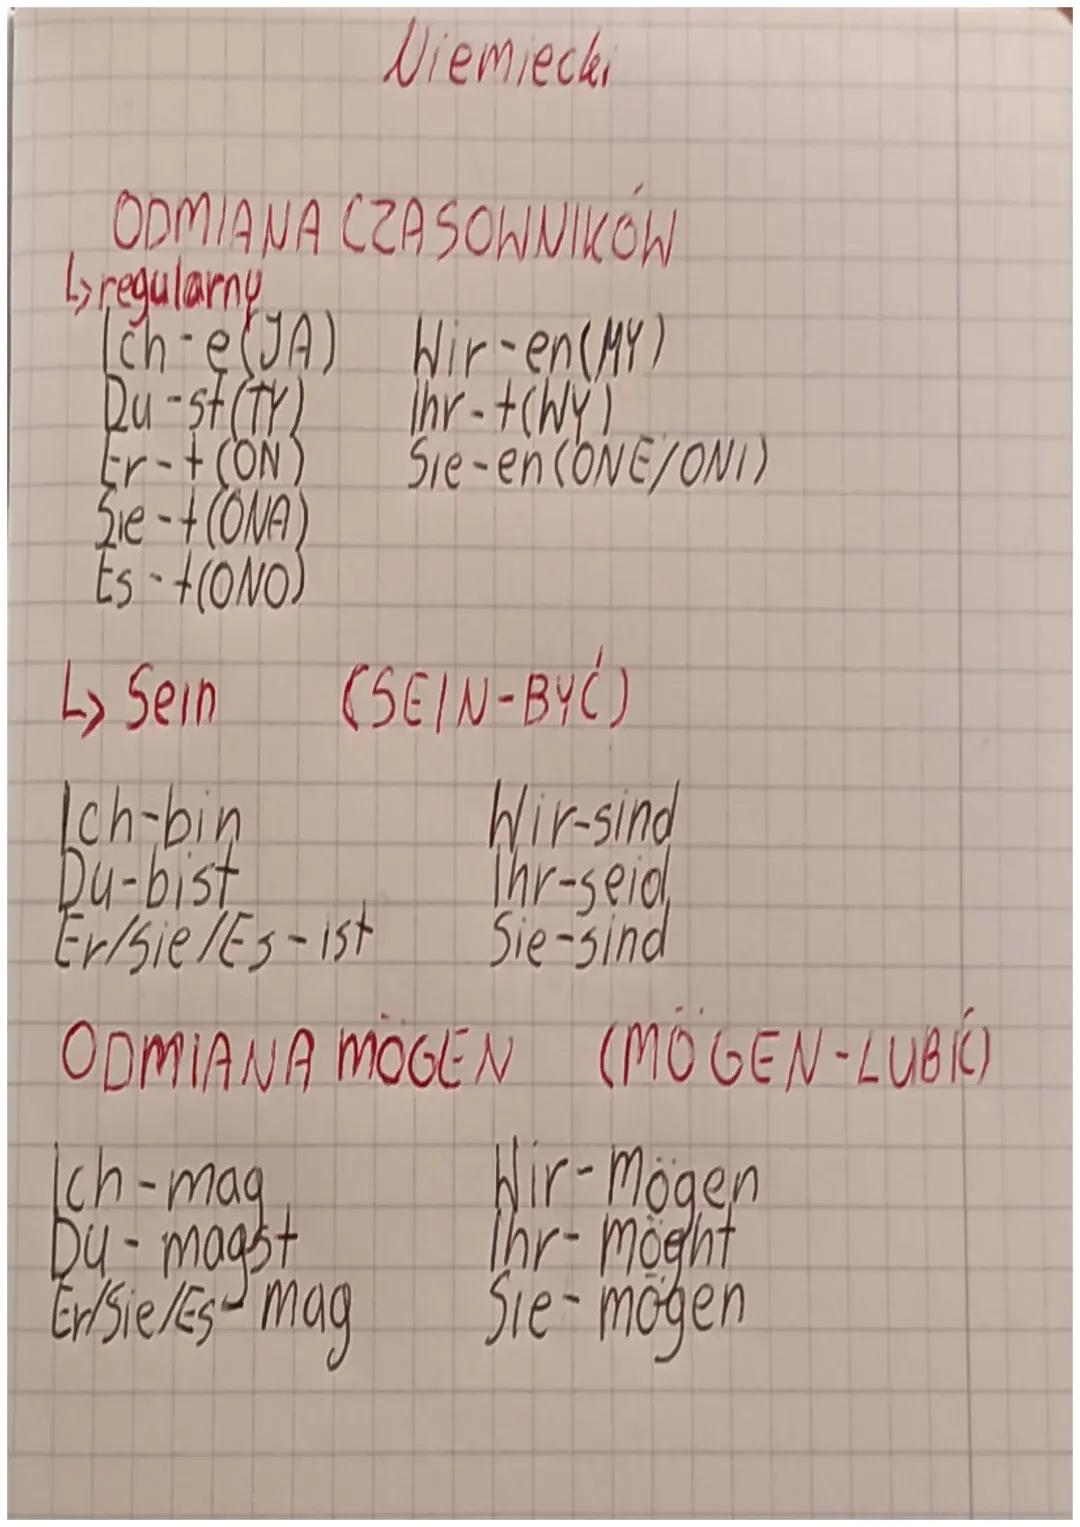 Niemiecki
ODMIANA CZASOWNIKÓW
↳ regularny
Ich - e (JA) Wir - en (MY)
Du - st (TY) Ihr - t (WY)
Er - t (ON) Sie - en (ONE/ONI)
Sie - t (ONA)
Es - t (ONO)
↳ Sein (SEIN - BYĆ)
Ich - bin Wir - sind
Du - bist Ihr - seid
Er/Sie/Es - ist Sie - sind
ODMIANA MÖGEN (MÖGEN - LUBIĆ)
Ich - mag Wir - Mögen
Du - magst Ihr - möght
Er/Sie/Es - mag Sie - mögen